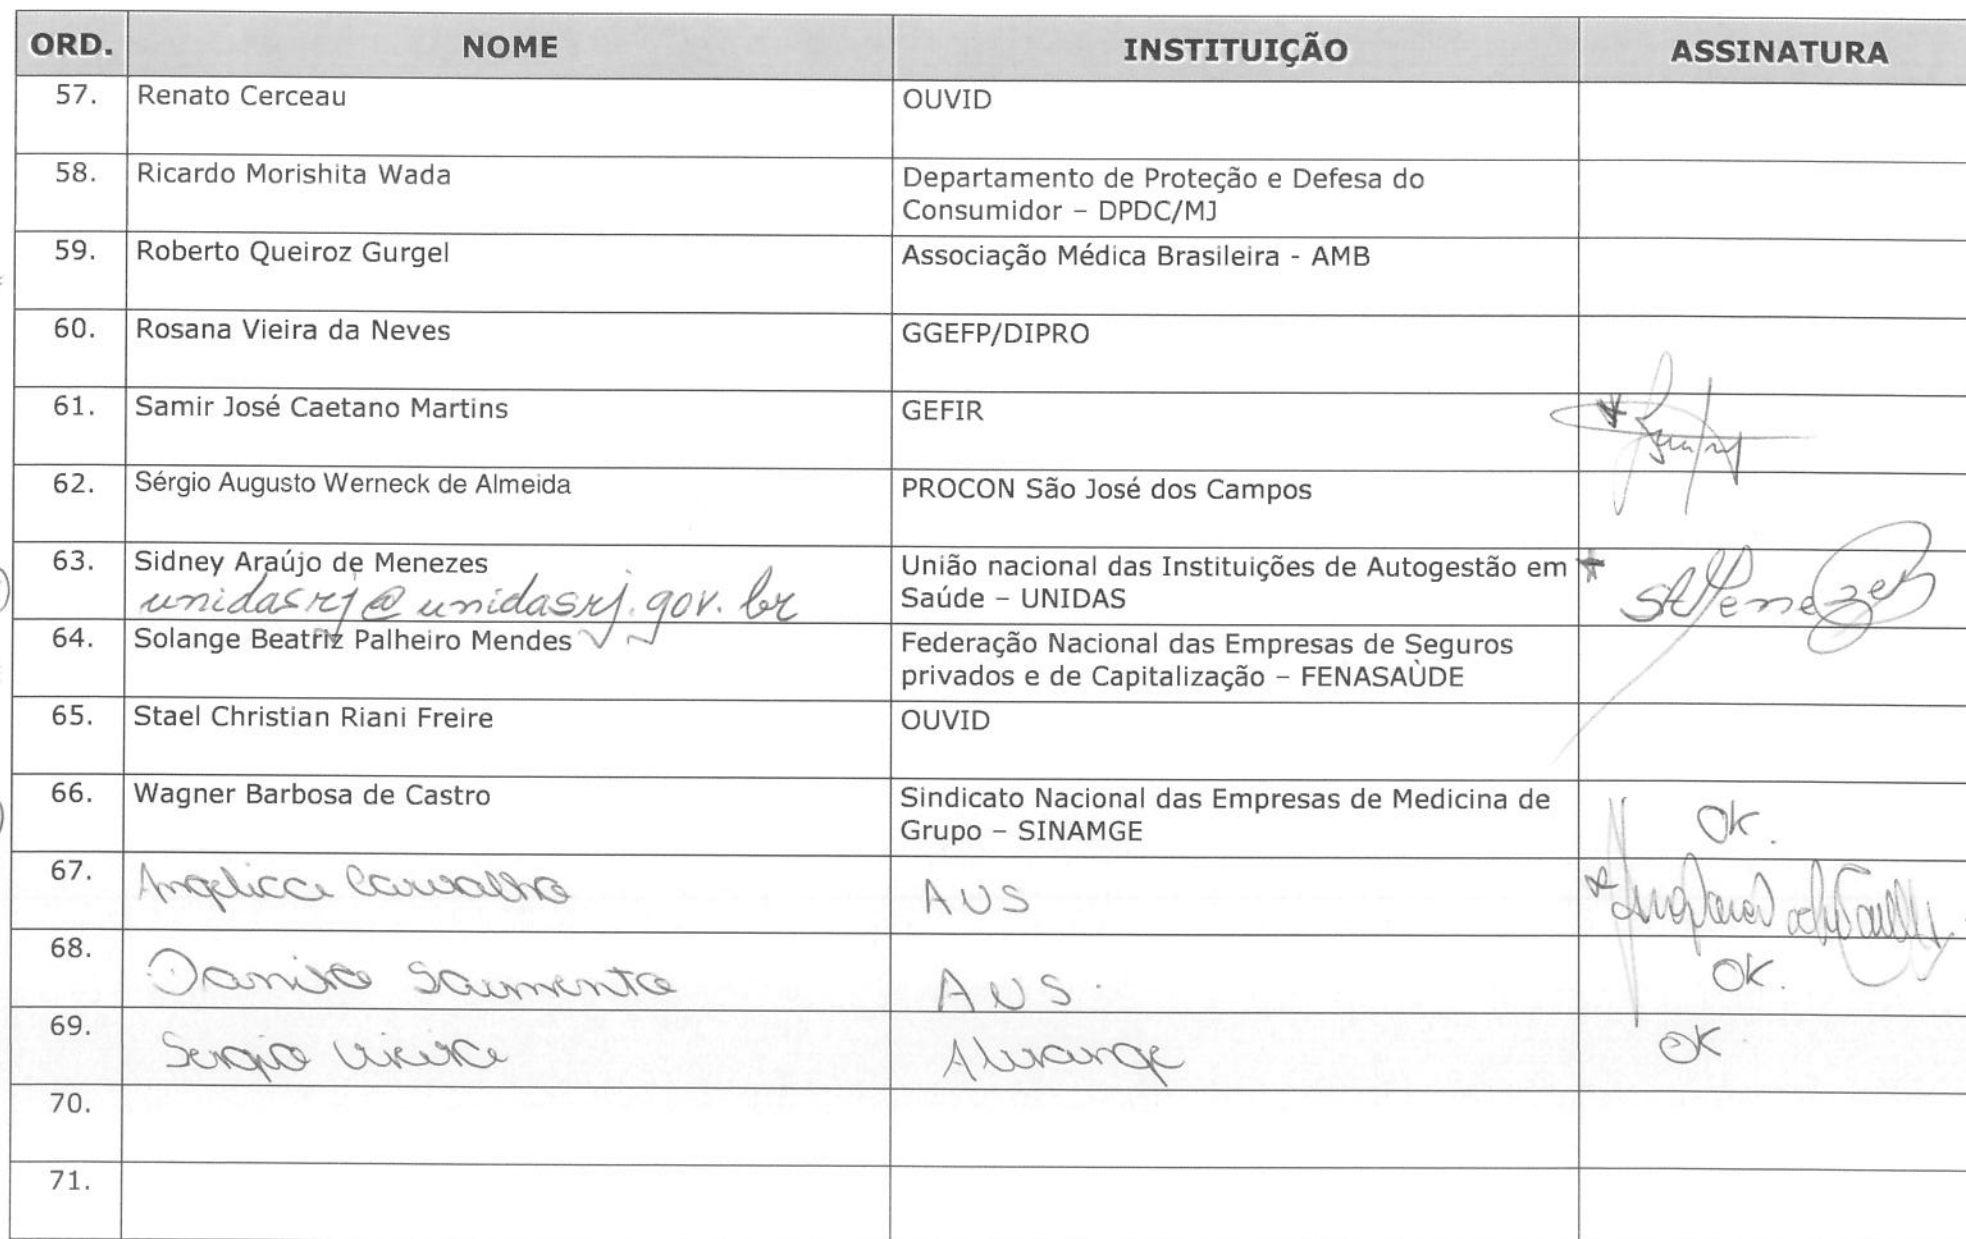 ORD. NOME INSTITUIÇÃO ASSINATURA
57. Renato Cerceau OUVID
58. Ricardo Morishita Wada Departamento de Proteção e Defesa do
Consumidor – DPDC/MJ
59. Roberto Queiroz Gurgel Associação Médica Brasileira - AMB
60. Rosana Vieira da Neves GGEFP/DIPRO
61. Samir José Caetano Martins GEFIR
62. Sérgio Augusto Werneck de Almeida PROCON São José dos Campos
63. Sidney Araújo de Menezes União nacional das Instituições de Autogestão em
unidasrj@unidasrj.gov.br Saúde – UNIDAS Menezes
64. Solange Beatriz Palheiro Mendes Federação Nacional das Empresas de Seguros
privados e de Capitalização – FENASAÙDE
65. Stael Christian Riani Freire OUVID
66. Wagner Barbosa de Castro Sindicato Nacional das Empresas de Medicina de
Grupo – SINAMGE OK.
67. Angelica Carvalho ANS
68. Danilo Sarmento ANS. OK.
69. Sergio Vieira Abrange OK
70.
71.